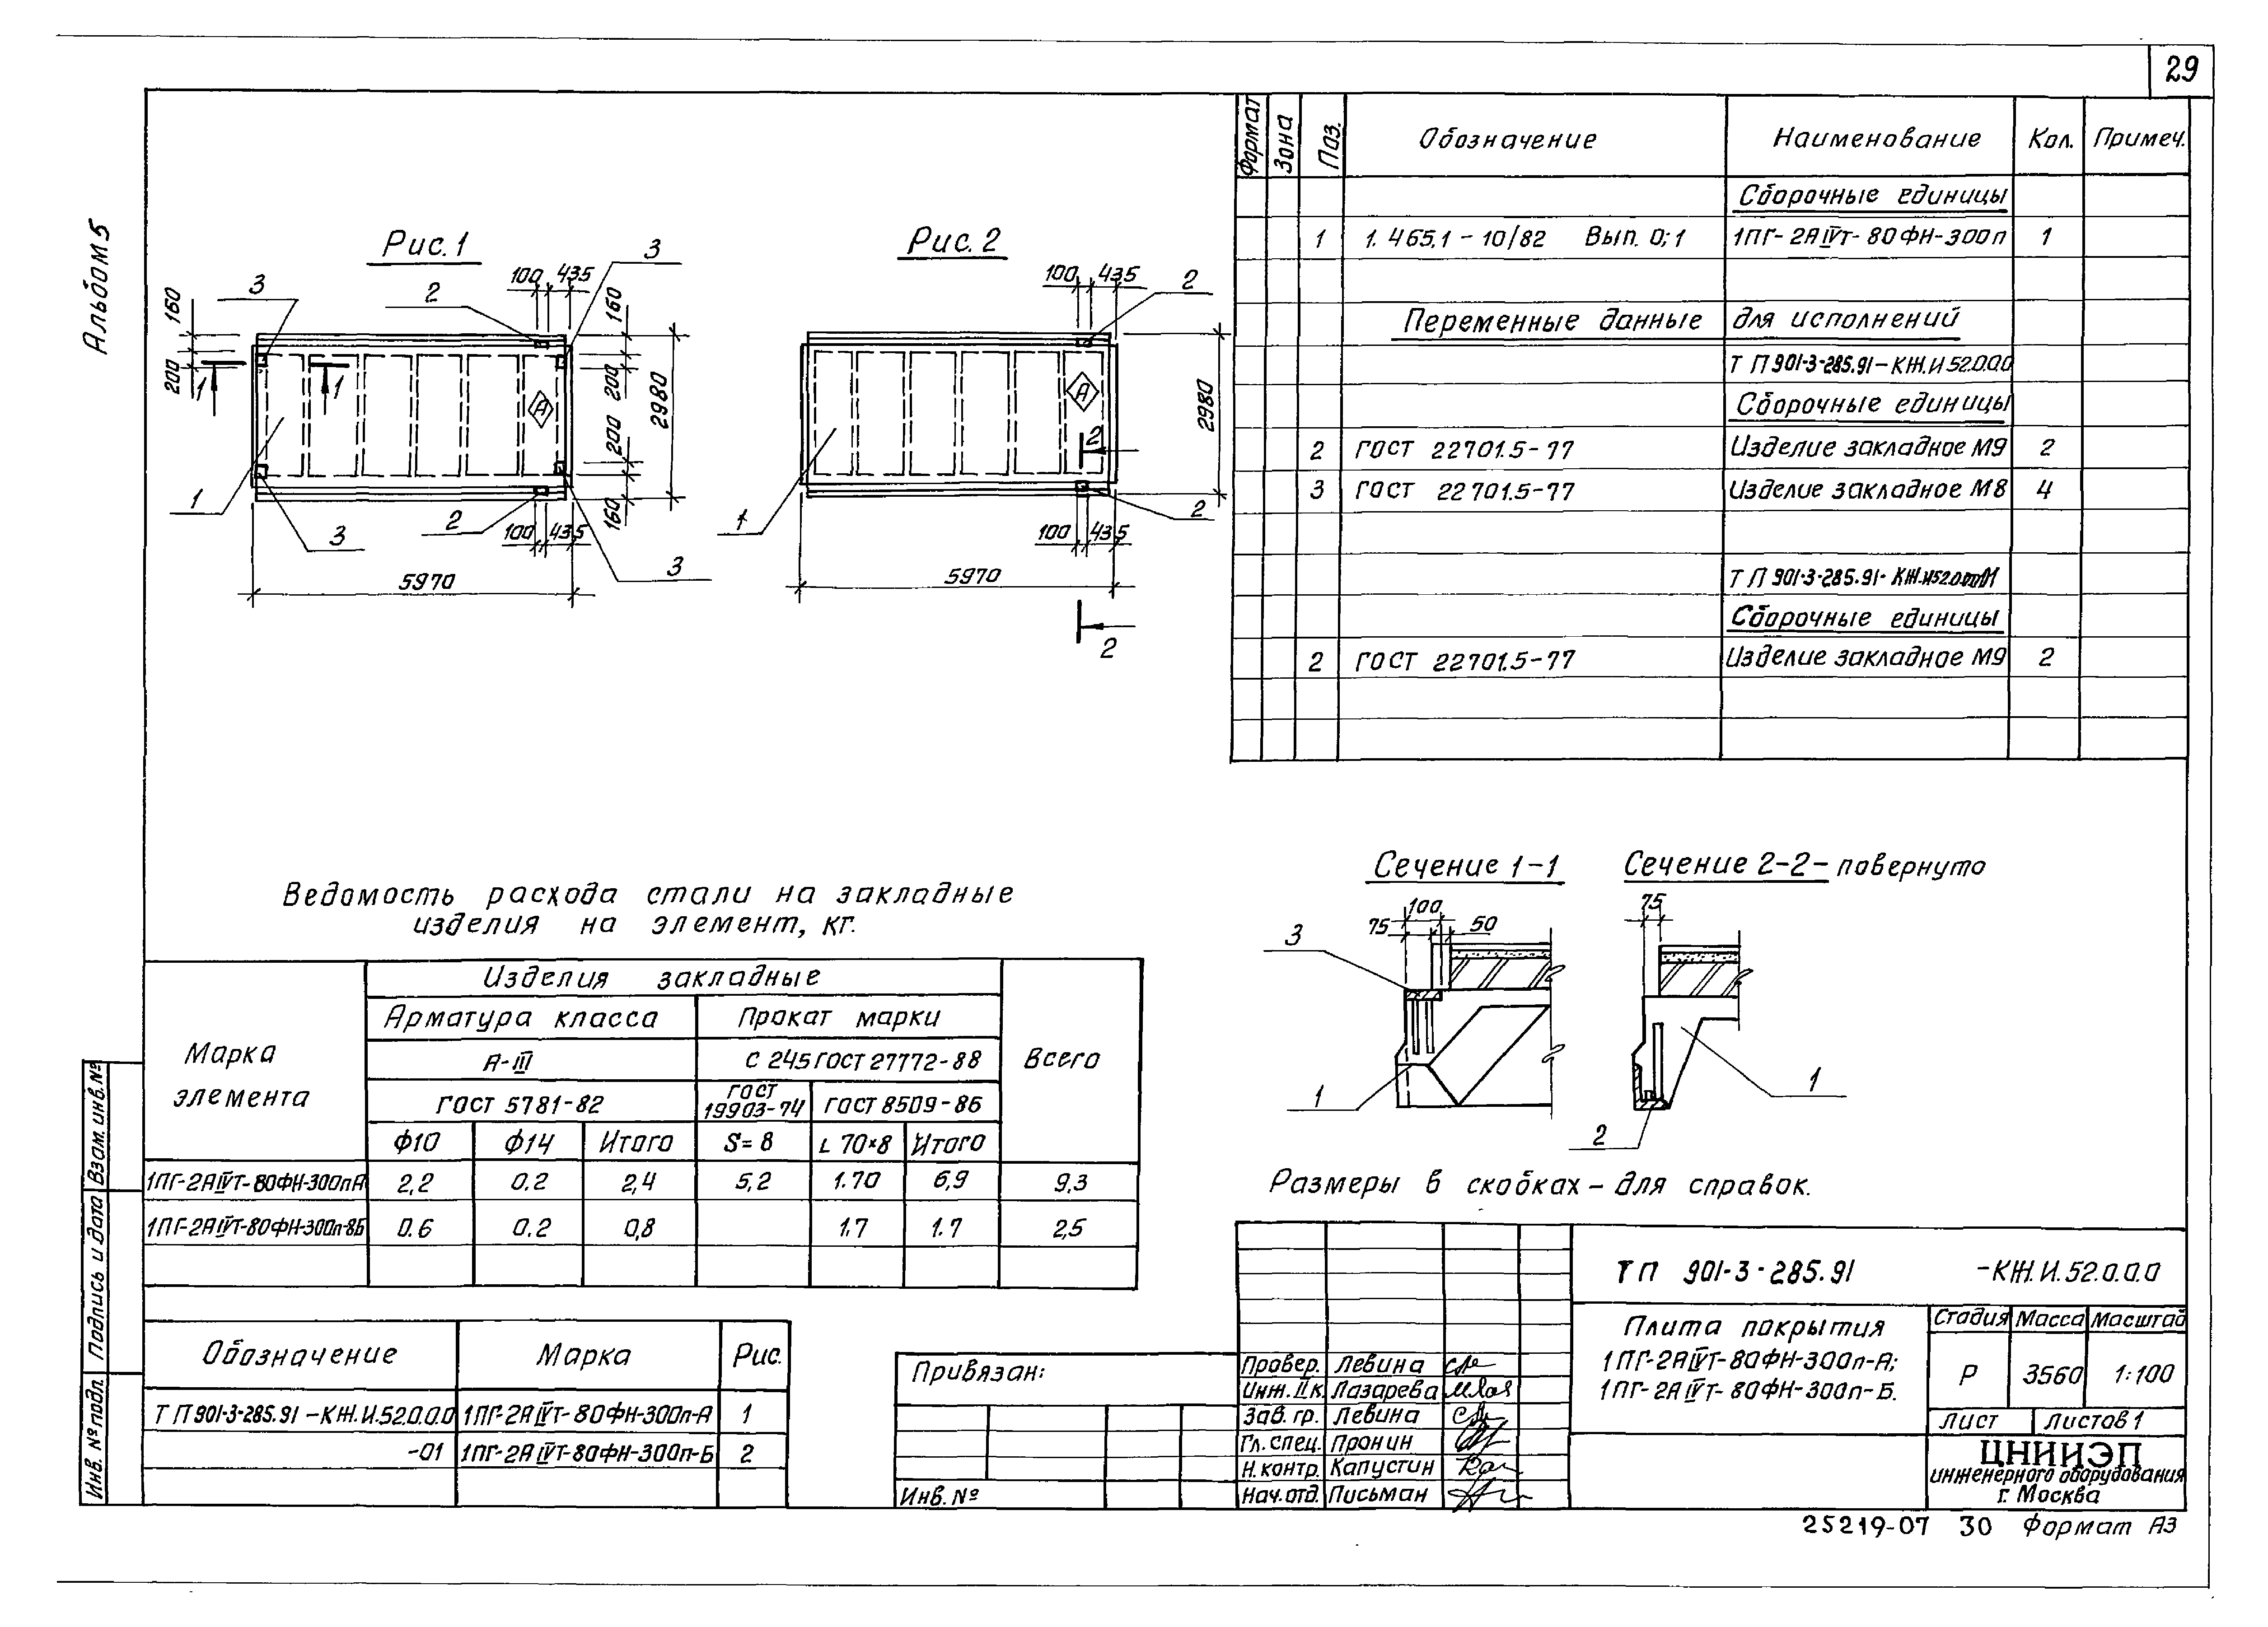 29
Альбом 5
Рис. 1
Рис. 2
3
2
100
435
3
160
160
200
1
1
200
2980
200
1
3
2
100
435
160
3
5970
100
435
2
А
А
2980
2
1
2
100
435
5970
2
Формат
Зона
Поз.
Обозначение
Наименование
Кол.
Примеч.
Сборочные единицы
1 1.465.1-10/82 Вып. 0;1 1ПГ-2АIVт-80ФН-300п 1
Переменные данные для исполнений
ТП 901-3-285.91-КЖ.И.52.0.0.0
Сборочные единицы
2 ГОСТ 22701.5-77 Изделие закладное М9 2
3 ГОСТ 22701.5-77 Изделие закладное М8 4
ТП 901-3-285.91-
Сборочные единицы
2 ГОСТ 22701.5-77 Изделие закладное М9 2
Ведомость расхода стали на закладные
изделия на элемент, кг.
Марка элемента
Изделия закладные
Всего
Арматура класса
Прокат марки
А-III
С 245 ГОСТ 27772-88
ГОСТ 5781-82
ГОСТ 19903-74
ГОСТ 8509-86
Ф10 Ф14 Итого S=8 L 70×8 Итого
1ПГ-2АIVТ-80ФН-300пА 2,2 0.2 2,4 5,2 1.70 6,9 9,3
1ПГ-2АIVТ-80ФН-300п-8Б 0.6 0.2 0,8 1.7 1.7 2,5
Сечение 1-1
Сечение 2-2- повернуто
100
75
50
3
1
75
1
2
Размеры в скобках - для справок.
Обозначение Марка Рис.
ТП 901-3-285.91-КЖ.И.52.0.0.0 1ПГ-2АIVТ-80ФН-300п-А 1
-01 1ПГ-2АIVТ-80ФН-300п-Б 2
Привязан:
Инв. №
Провер. Левина
Инж. II к. Лазарева
Зав. гр. Левина
Гл. спец. Пронин
Н. контр. Капустин
Нач. отд. Письман
ТП 901-3-285.91 -КЖ.И.52.0.0.0
Плита покрытия
1ПГ-2АIVт-80ФН-300п-А;
1ПГ-2АIVт-80ФН-300п-Б.
Стадия Масса Масштаб
Р 3560 1:100
Лист Листов 1
ЦНИИЭП
инженерного оборудования
г. Москва
Взам. инв. №
Подпись и дата
Инв. № подл.
25219-07 30 Формат А3